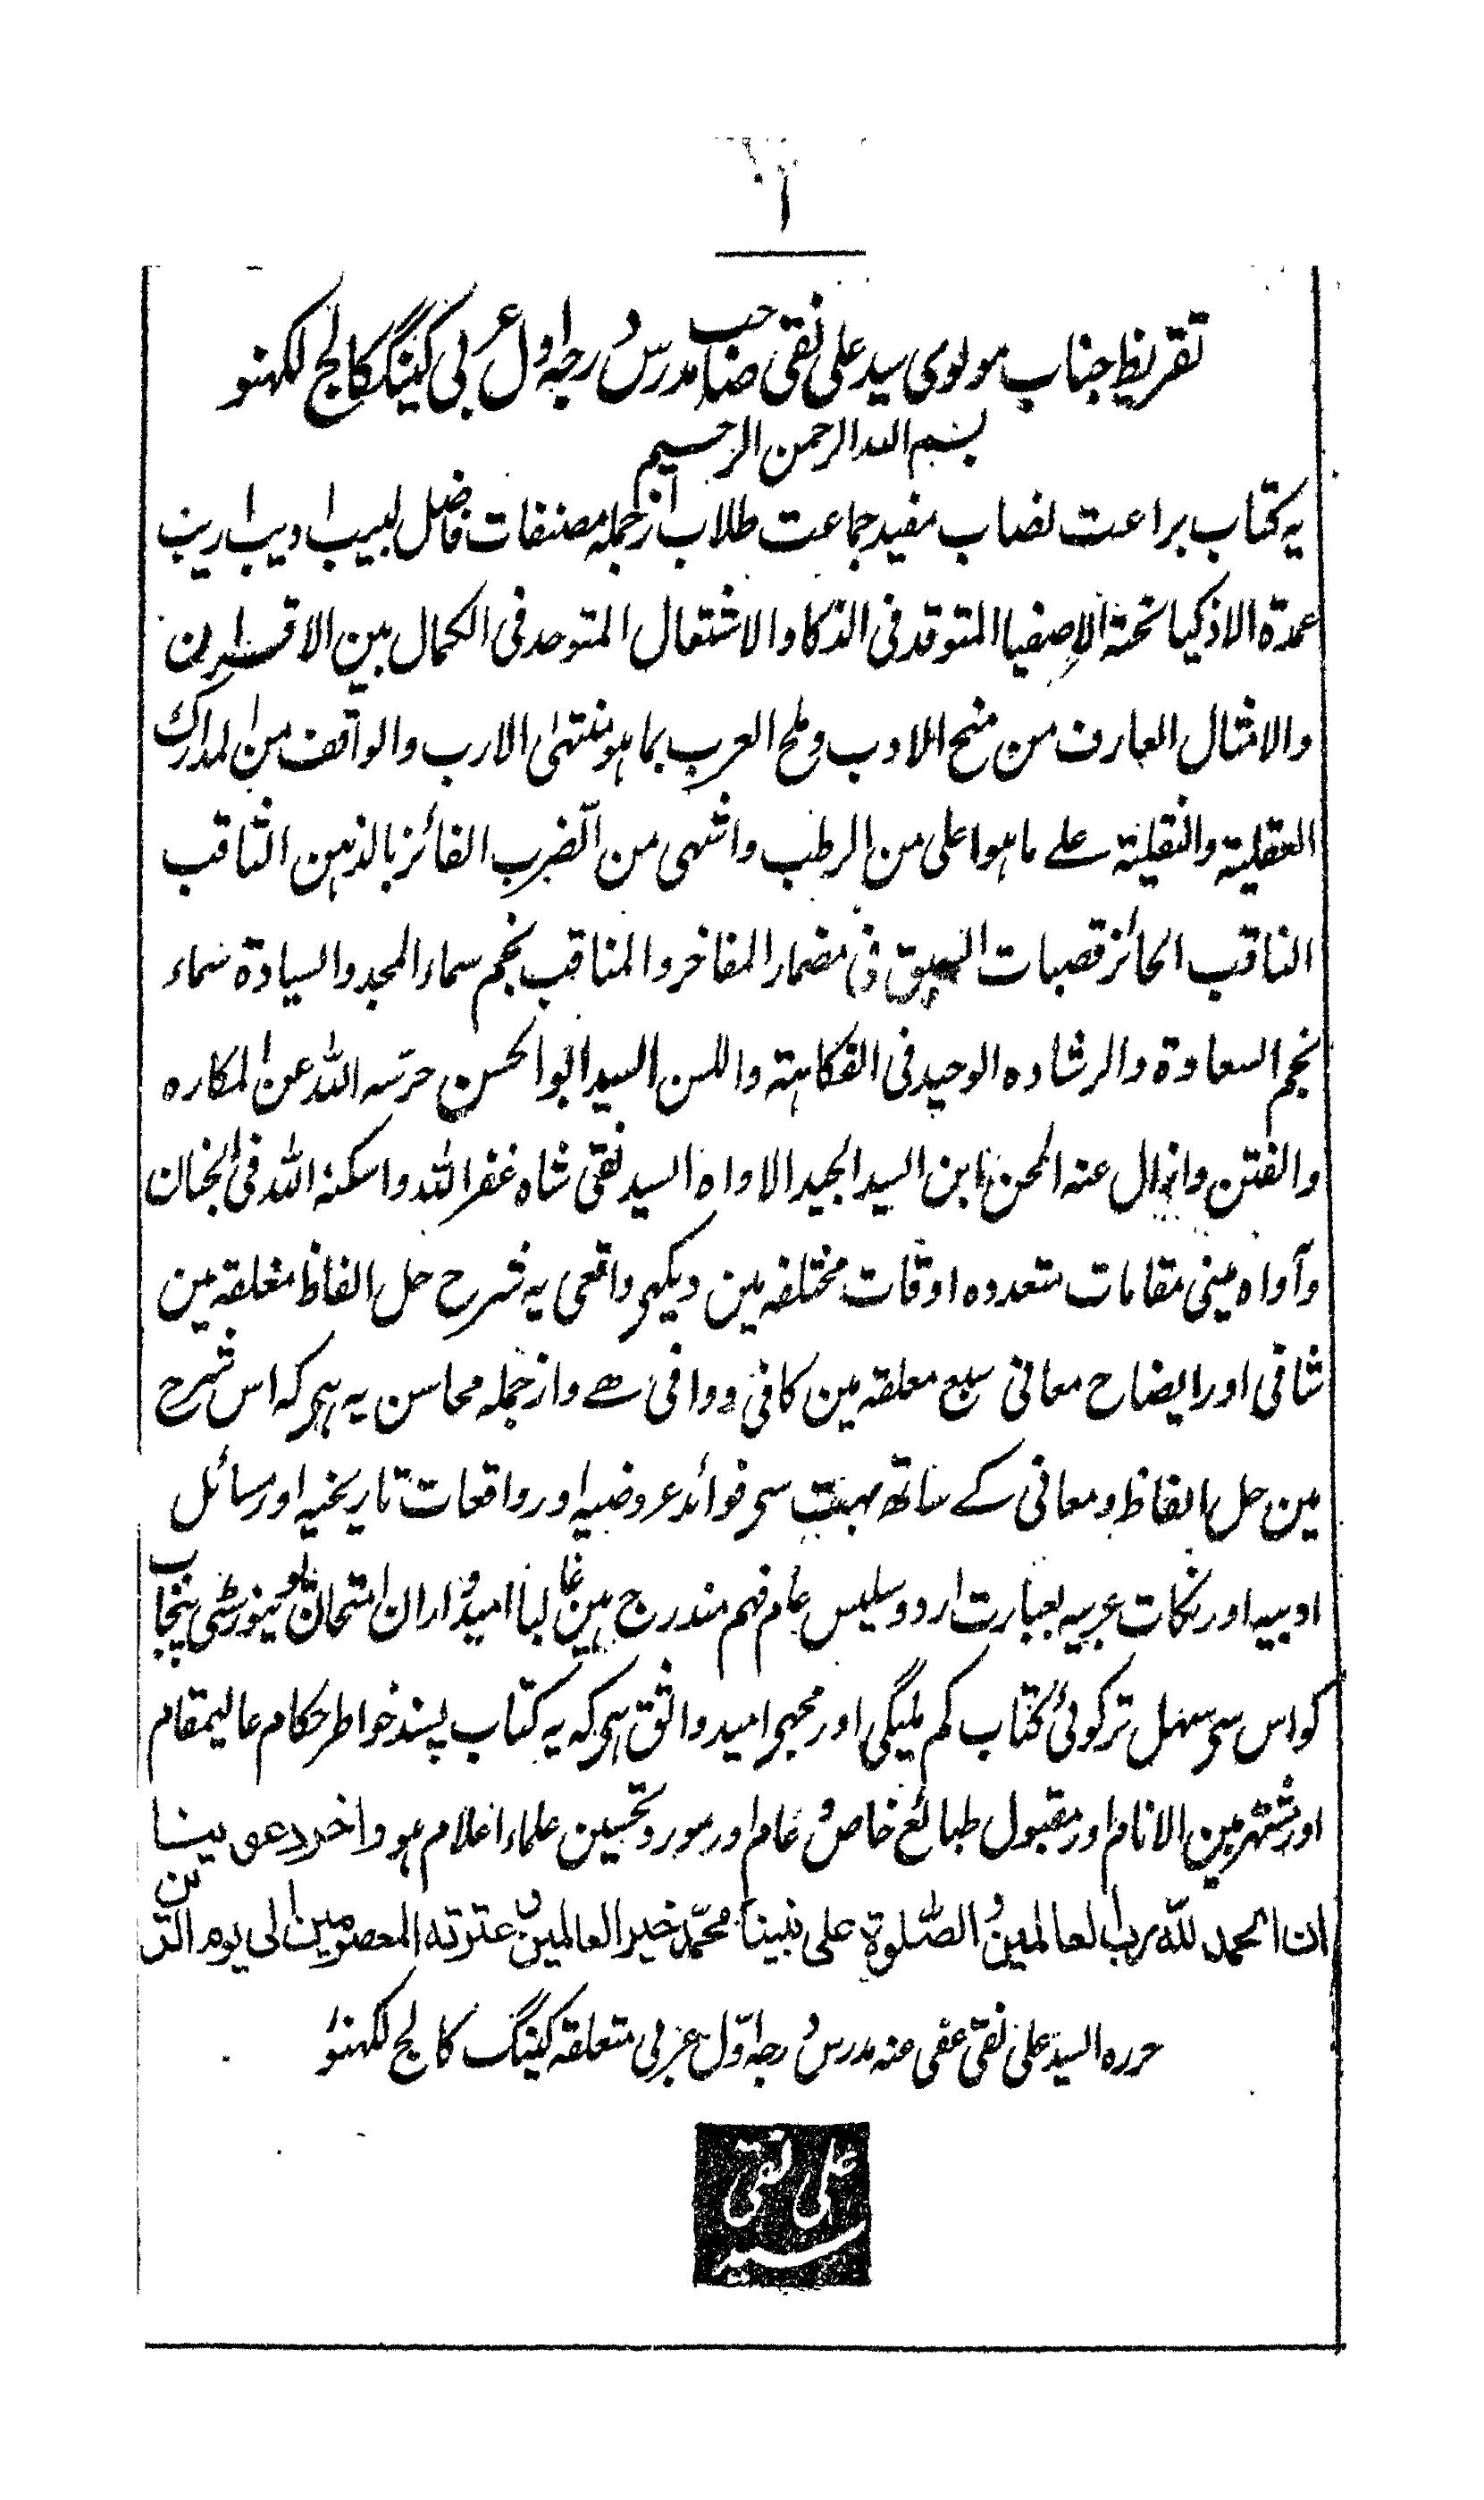 ۱
تقریظ جناب مولوی سید علی نقی صاحب مدرس درجہ اول عربی کیننگ کالج لکہنو
بسم اللہ الرحمن الرحیم
یہ کتاب براعت نصاب مفید جماعت طلاب از جملہ مصنفات فاضل لبیب ادیب اریب
عمدۃ الاذکیا نخبۃ الاصفیا المتوقد فی الذکا والاشتعال المتوحد فی الکمال بین الاقران
والامثال العارف من منح الادب وملح العرب بما ہو منتہیٰ الارب والواقف من المدارک
العقلیۃ والنقلیۃ علے ما ہو اعلی من الرطب واشہی من الضرب الفائز بالذہن الثاقب
الناقب الحائز قصبات السبق فی مضمار المفاخر والمناقب نجم سماء المجد والسیادۃ سماء
نجم السعادۃ والرشادہ الوحید فی الفکاہتہ واللسن السید ابو الحسن حرسہ اللہ عن المکارہ
والفتن وازال عنہ المحن ابن السید المجید الاواہ السید نقی شاہ غفر اللہ واسکنہ اللہ فی الجنان
وآواہ مینی مقامات متعددہ اوقات مختلفہ مین دیکہی واقعی یہ شرح حل الفاظ مغلقہ مین
شافی اور ایضاح معانی سبع معلقہ مین کافی ووافی ہے واز جملہ محاسن یہ ہی کہ اس شرح
مین حل الفاظ ومعانی کے ساتھ بہت سی فوائد عروضیہ اور واقعات تاریخیہ اور رسائل
ادبیہ اور نکات عربیہ بعبارت اردو سلیس عام فہم مندرج ہین غالبا امیدواران امتحان یونیورسٹی پنجاب
کو اس سی سہل تر کوئی کتاب کم ملیگی اور مجہی امید واثق ہی کہ یہ کتاب پسند خواطر حکام عالیمقام
اور مشتہر بین الانام اور مقبول طبائع خاص وعام اور مورد تحسین علماء اعلام ہو واخر دعوینا
ان الحمد للہ رب العالمین والصلوۃ علی نبینا محمد خیر العالمین وعترتہ المعصومین الی یوم الدین
حررہ السید علی نقی عفی عنہ مدرس درجہ اول عربی متعلقہ کیننگ کالج لکہنؤ
علی نقی